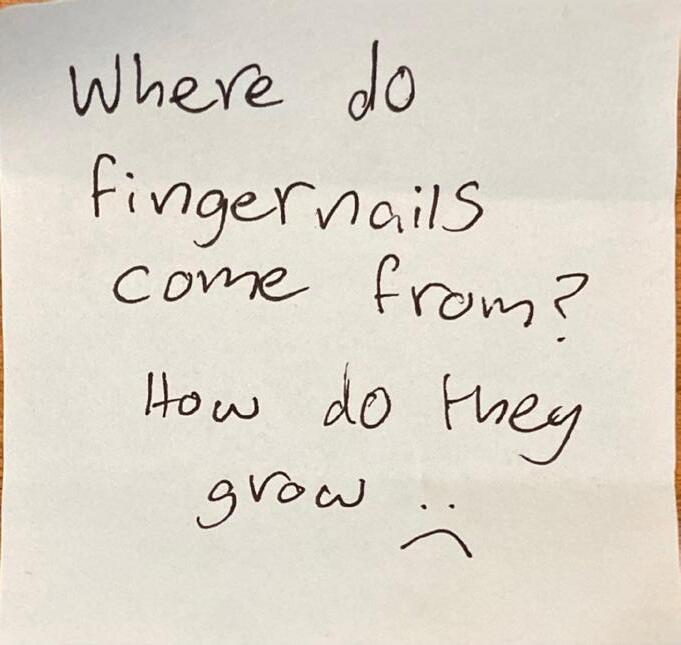 Where do
fingernails
come from?
How do they
grow :(